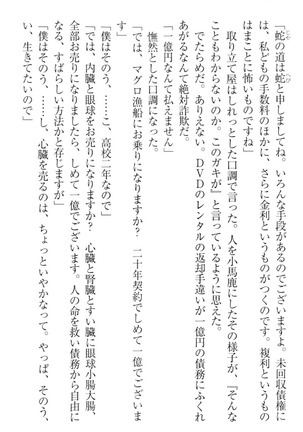 「蛇の道は蛇と申しましてね。いろんな手段があるのです。未回収債権に
は、私どもの手数料のほかに、さらに金利というものがつくのです。複利というもの
はまことに怖いものですね」
取り立て屋はしれっとした口調で言った。人を小馬鹿にしたその様子が、『そんな
こともわからないのか。このガキが』と言っているように思えた。
でたらめだ。ありえない。ＤＶＤのレンタルの返却手違いが一億円の債務にふくれ
あがるなんて絶対詐欺だ。
「一億円なんて払えません」
憮然とした口調になった。
「では、マグロ漁船にお乗りになりますか？　二十年契約でしめて一億でございま
す」
「僕はそのう、……こ、高校二年なので」
「では、内臓と眼球をお売りになりますか？　心臓と腎臓とすい臓に眼球小腸大腸、
全部お売りになりましたら、しめて一億でございます。人の命を救い債務から自由に
なる、すばらしい方法かと存じますが」
「僕はそのう、……し、心臓を売るのは、ちょっといやかなって。やっぱ、そのう、
い、生きてたいので」